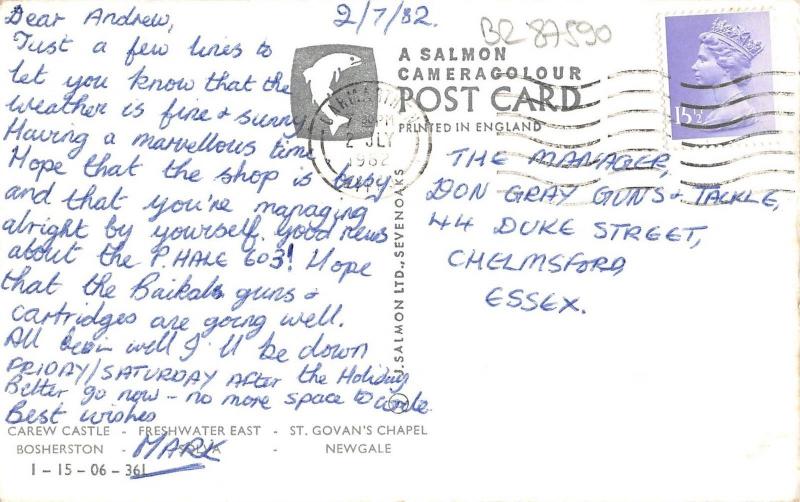 Dear Andrew,
2/7/82.
Just a few lines to
let you know that the
weather is fine & sunny
Having a marvellous time
Hope that the shop is busy
and that you're managing
alright by yourself. Good news
about the P. HALE 603! Hope
that the Baikals guns &
cartridges are going well.
All bein well I'll be down
FRIDAY/SATURDAY AFTER the Holiday
Better go now - no more space to write
Best wishes
MARK
BR 87590
A SALMON
CAMERACOLOUR
POST CARD
PRINTED IN ENGLAND
PM
2 JLY
1982
15½P
THE MANAGER,
DON GRAY GUNS & TACKLE,
44 DUKE STREET,
CHELMSFORD,
ESSEX.
© J. SALMON LTD., SEVENOAKS
CAREW CASTLE - FRESHWATER EAST - ST. GOVAN'S CHAPEL
BOSHERSTON - SOLVA - NEWGALE
1 - 15 - 06 - 361